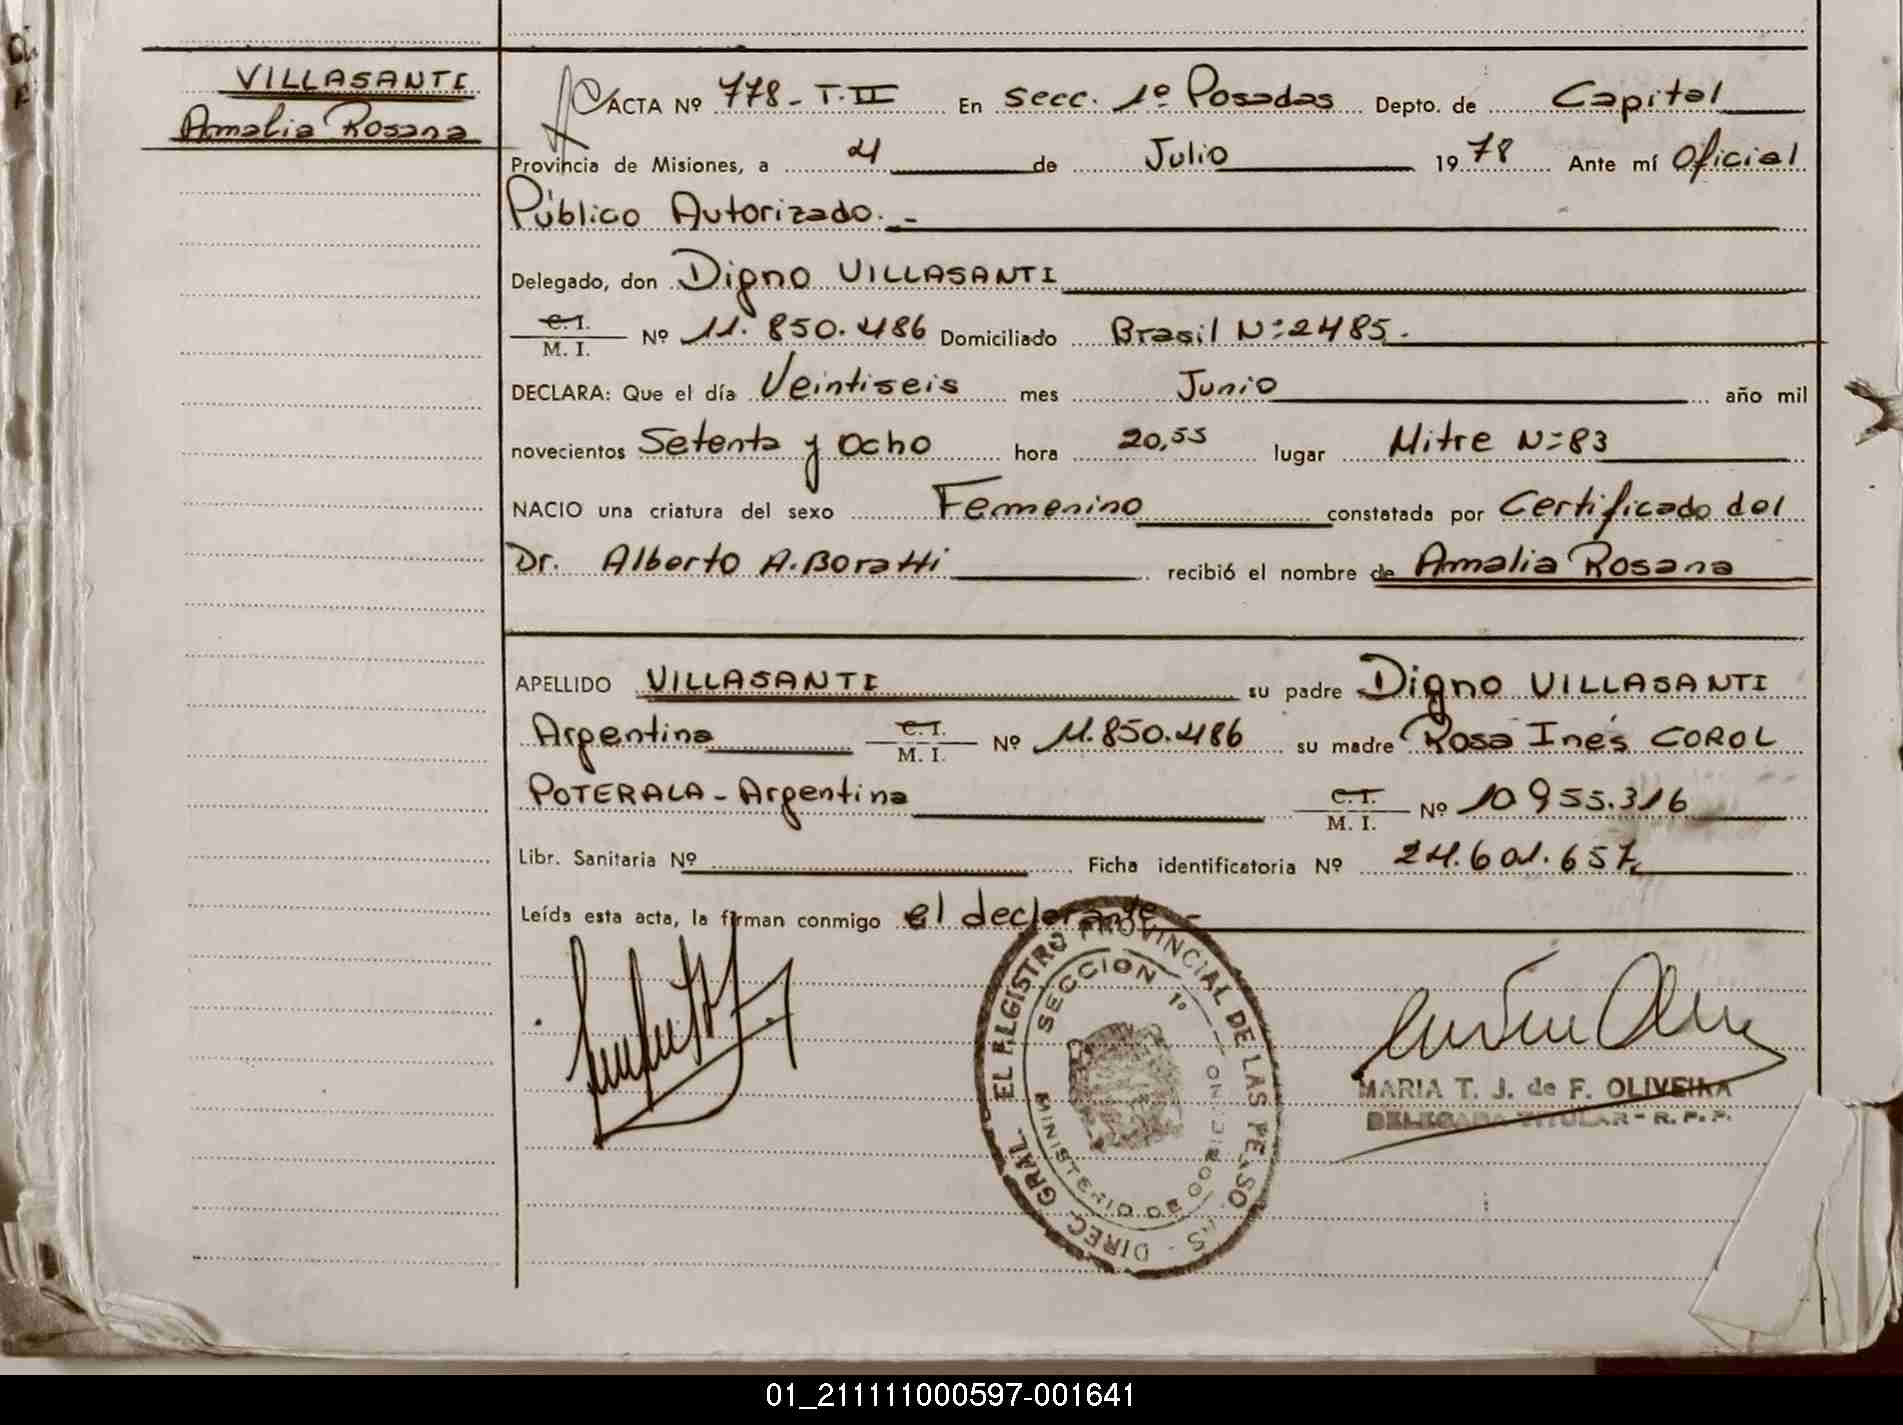 VILLASANTI
Amalia Rosana
ACTA Nº 778 - T. II En Secc. 1º Posadas Depto. de Capital
Provincia de Misiones, a 4 de Julio 1978 Ante mí Oficial
Público Autorizado. -
Delegado, don Digno VILLASANTI
C. I. / M. I. Nº 11.850.486 Domiciliado Brasil Nº 2485.
DECLARA: Que el día Veintiseis mes Junio año mil
novecientos Setenta y Ocho hora 20,55 lugar Mitre Nº 83
NACIO una criatura del sexo Femenino constatada por Certificado del
Dr. Alberto A. Boratti recibió el nombre de Amalia Rosana
APELLIDO VILLASANTI su padre Digno VILLASANTI
Argentina C. I. / M. I. Nº 11.850.486 su madre Rosa Inés COROL
POTERALA - Argentina C. I. / M. I. Nº 10955.316
Libr. Sanitaria Nº Ficha identificatoria Nº 24.601.657
Leída esta acta, la firman conmigo el declarante -
DIREC. GRAL. EL REGISTRO PROVINCIAL DE LAS PERSONAS
SECCION 1º
MINISTERIO DE GOBIERNO
MARIA T. J. de F. OLIVEIRA
DELEGADA TITULAR - R. P. P.
01_211111000597-001641